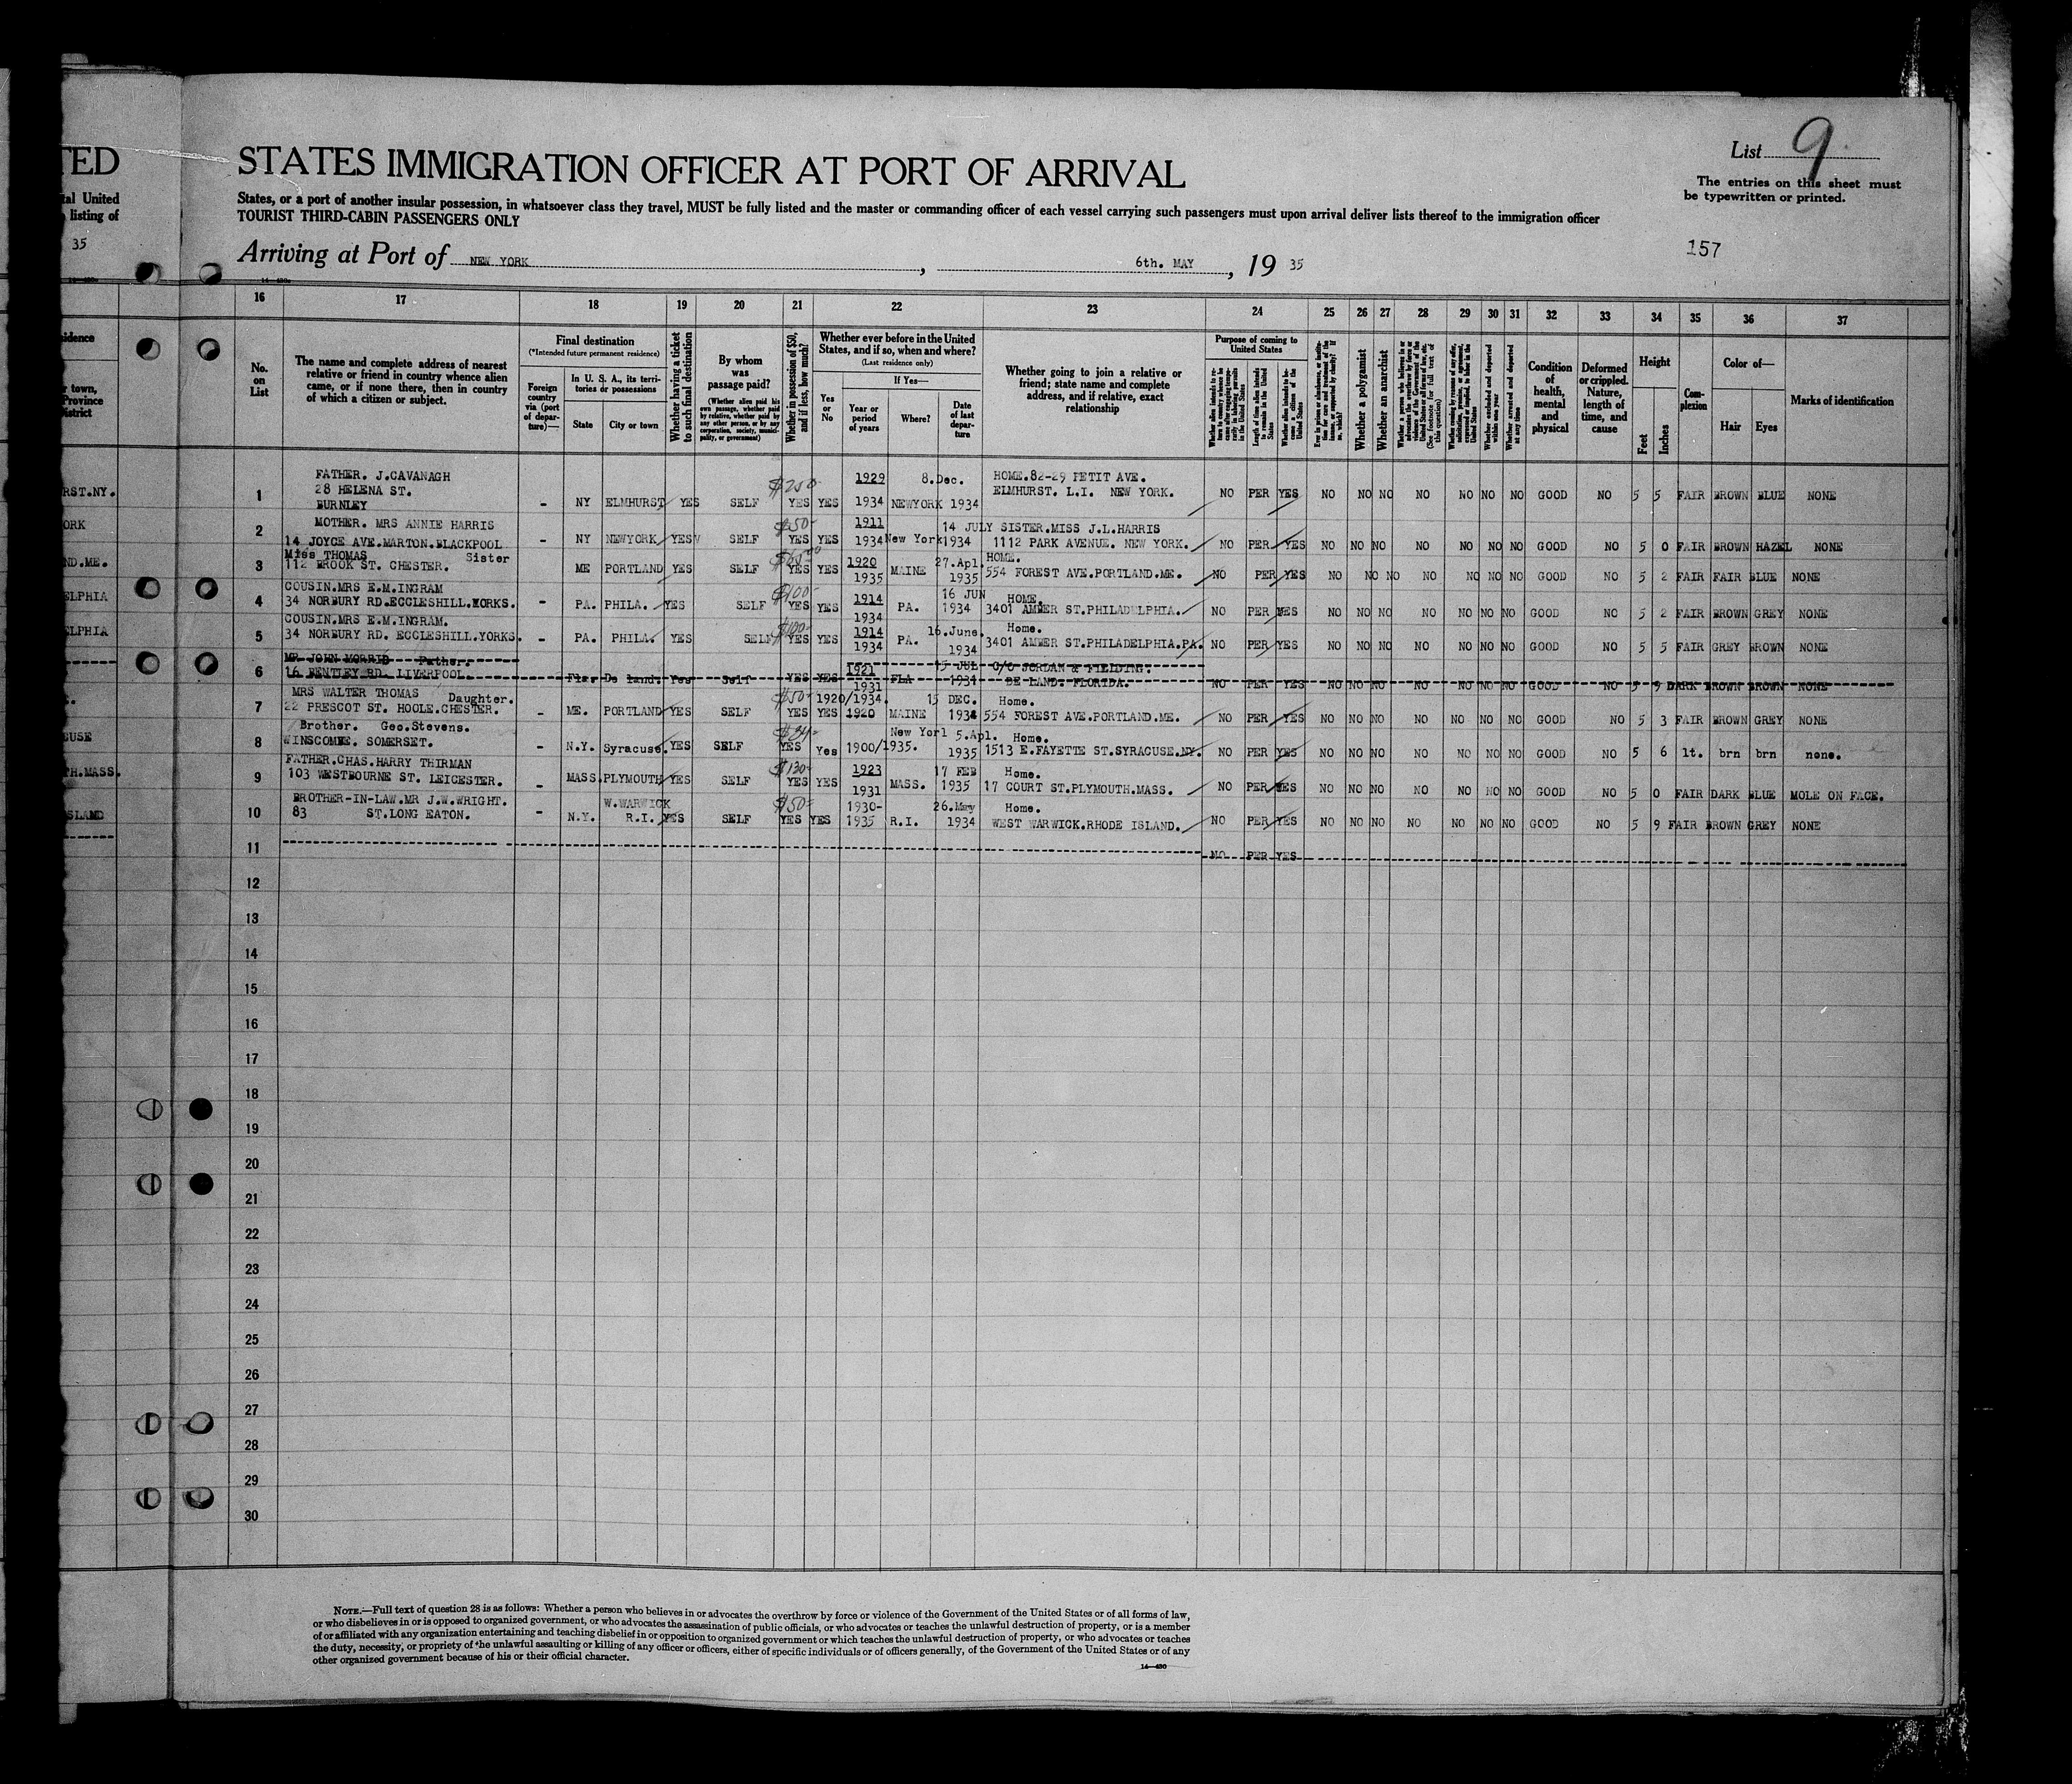 TED
STATES IMMIGRATION OFFICER AT PORT OF ARRIVAL
List 9
The entries on this sheet must
be typewritten or printed.
tal United
listing of
States, or a port of another insular possession, in whatsoever class they travel, MUST be fully listed and the master or commanding officer of each vessel carrying such passengers must upon arrival deliver lists thereof to the immigration officer
TOURIST THIRD-CABIN PASSENGERS ONLY
35
157
Arriving at Port of NEW YORK, 6th. MAY, 19 35
16 17 18 19 20 21 22 23 24 25 26 27 28 29 30 31 32 33 34 35 36 37
No. on List
The name and complete address of nearest relative or friend in country whence alien came, or if none there, then in country of which a citizen or subject.
Final destination
(*Intended future permanent residence)
Foreign country via (port of departure)—
In U. S. A., its territories or possessions
State
City or town
Whether having a ticket to such final destination
By whom was passage paid?
(Whether alien paid his own passage, whether paid by relative, whether paid by any other person, or by any corporation, society, municipality, or government)
Whether in possession of $50, and if less, how much?
Whether ever before in the United States, and if so, when and where?
(Last residence only)
Yes or No
If Yes—
Year or period of years
Where?
Date of last departure
Whether going to join a relative or friend; state name and complete address, and if relative, exact relationship
Purpose of coming to United States
Length of time alien intends to remain in the United States
Whether alien intends to become a citizen of the United States
Whether a polygamist
Whether an anarchist
Whether arrested and deported at any time
Condition of health, mental and physical
Deformed or crippled. Nature, length of time, and cause
Height
Feet
Inches
Complexion
Color of—
Hair
Eyes
Marks of identification
RST.NY.
1 FATHER. J.CAVANAGH 28 HELENA ST. BURNLEY - NY ELMHURST YES SELF $250- YES YES 1929 1934 NEWYORK 8.Dec. 1934 HOME.82-29 PETIT AVE. ELMHURST. L.I. NEW YORK. NO PER YES NO NO NO NO NO NO NO GOOD NO 5 5 FAIR BROWN BLUE NONE
ORK
2 MOTHER. MRS ANNIE HARRIS 14 JOYCE AVE.MARTON.BLACKPOOL - NY NEWYORK YES SELF $50- YES YES 1911 1934 New York 14 JULY 1934 SISTER.MISS J.L.HARRIS 1112 PARK AVENUE. NEW YORK. NO PER YES NO NO NO NO NO NO NO GOOD NO 5 0 FAIR BROWN HAZEL NONE
ND.ME.
3 Miss THOMAS Sister 112 BROOK ST. CHESTER. ME PORTLAND YES SELF YES YES 1920 1935 MAINE 27.Apl. 1935 HOME. 554 FOREST AVE.PORTLAND.ME. NO PER YES NO NO NO NO NO NO NO GOOD NO 5 2 FAIR FAIR BLUE NONE
ELPHIA
4 COUSIN.MRS E.M.INGRAM 34 NORBURY RD.ECCLESHILL.YORKS. - PA. PHILA. YES SELF $100- YES YES 1914 1934 PA. 16 JUN 1934 HOME. 3401 AMBER ST.PHILADELPHIA. NO PER YES NO NO NO NO NO NO NO GOOD NO 5 2 FAIR BROWN GREY NONE
ELPHIA
5 COUSIN.MRS E.M.INGRAM. 34 NORBURY RD. ECCLESHILL.YORKS. - PA. PHILA. YES SELF $100- YES YES 1914 1934 PA. 16.June. 1934 Home. 3401 AMBER ST.PHILADELPHIA.PA. NO PER YES NO NO NO NO NO NO NO GOOD NO 5 5 FAIR GREY BROWN NONE
6 MR JOHN MORRIS Father. 16 BENTLEY RD. LIVERPOOL. Fla. De land. Yes Self YES YES 1921 1931 FLA 15 JUL 1934 C/O JORDAN & FIELDING. DE LAND. FLORIDA. NO PER YES NO NO NO NO NO NO NO GOOD NO 5 9 DARK BROWN BROWN NONE
7 MRS WALTER THOMAS Daughter. 22 PRESCOT ST. HOOLE.CHESTER. - ME. PORTLAND YES SELF $50- YES YES 1920/1934. 1920 MAINE 15 DEC. 1934 Home. 554 FOREST AVE.PORTLAND.ME. NO PER YES NO NO NO NO NO NO NO GOOD NO 5 3 FAIR BROWN GREY NONE
CUSE
8 Brother. Geo.Stevens. WINSCOMBE. SOMERSET. - N.Y. Syracuse. YES SELF YES Yes 1900/1935. New Yorl 5.Apl. 1935 Home. 1513 E.FAYETTE ST.SYRACUSE.NY. NO PER YES NO NO NO NO NO NO NO GOOD NO 5 6 lt. brn brn none.
TH.MASS.
9 FATHER.CHAS.HARRY THIRMAN 103 WESTBOURNE ST. LEICESTER. - MASS. PLYMOUTH YES SELF $130- YES YES 1923 1931 MASS. 17 FEB 1935 Home. 17 COURT ST.PLYMOUTH.MASS. NO PER YES NO NO NO NO NO NO NO GOOD NO 5 0 FAIR DARK BLUE MOLE ON FACE.
ISLAND
10 BROTHER-IN-LAW.MR J.W.WRIGHT. 83 ST.LONG EATON. - N.Y. W.WARWICK R.I. YES SELF $50- YES YES 1930- 1935 R.I. 26.May 1934 Home. WEST WARWICK.RHODE ISLAND. NO PER YES NO NO NO NO NO NO NO GOOD NO 5 9 FAIR BROWN GREY NONE
11 NO PER YES
12
13
14
15
16
17
18
19
20
21
22
23
24
25
26
27
28
29
30
NOTE.—Full text of question 28 is as follows: Whether a person who believes in or advocates the overthrow by force or violence of the Government of the United States or of all forms of law,
or who disbelieves in or is opposed to organized government, or who advocates the assassination of public officials, or who advocates or teaches the unlawful destruction of property, or is a member
of or affiliated with any organization entertaining and teaching disbelief in or opposition to organized government or which teaches the unlawful destruction of property, or who advocates or teaches
the duty, necessity, or propriety of the unlawful assaulting or killing of any officer or officers, either of specific individuals or of officers generally, of the Government of the United States or of any
other organized government because of his or their official character.
14—430